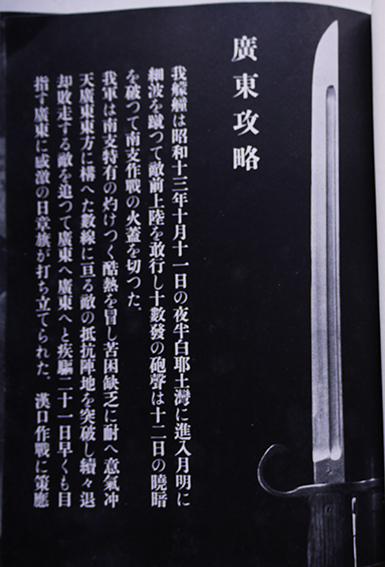 廣東攻略
我艨艟は昭和十三年十月十一日の夜半白耶土灣に進入月明に
細波を蹴つて敵前上陸を敢行し十數發の砲聲は十二日の曉暗
を破つて南支作戰の火蓋を切つた。
我軍は南支特有の灼けつく酷熱を冒し苦困缺乏に耐へ意氣冲
天廣東東方に構へた數線に亘る敵の抵抗陣地を突破し續々退
却敗走する敵を追つて廣東へ廣東へと疾驅二十一日早くも目
指す廣東に感激の日章旗が打ち立てられた。漢口作戰に策應